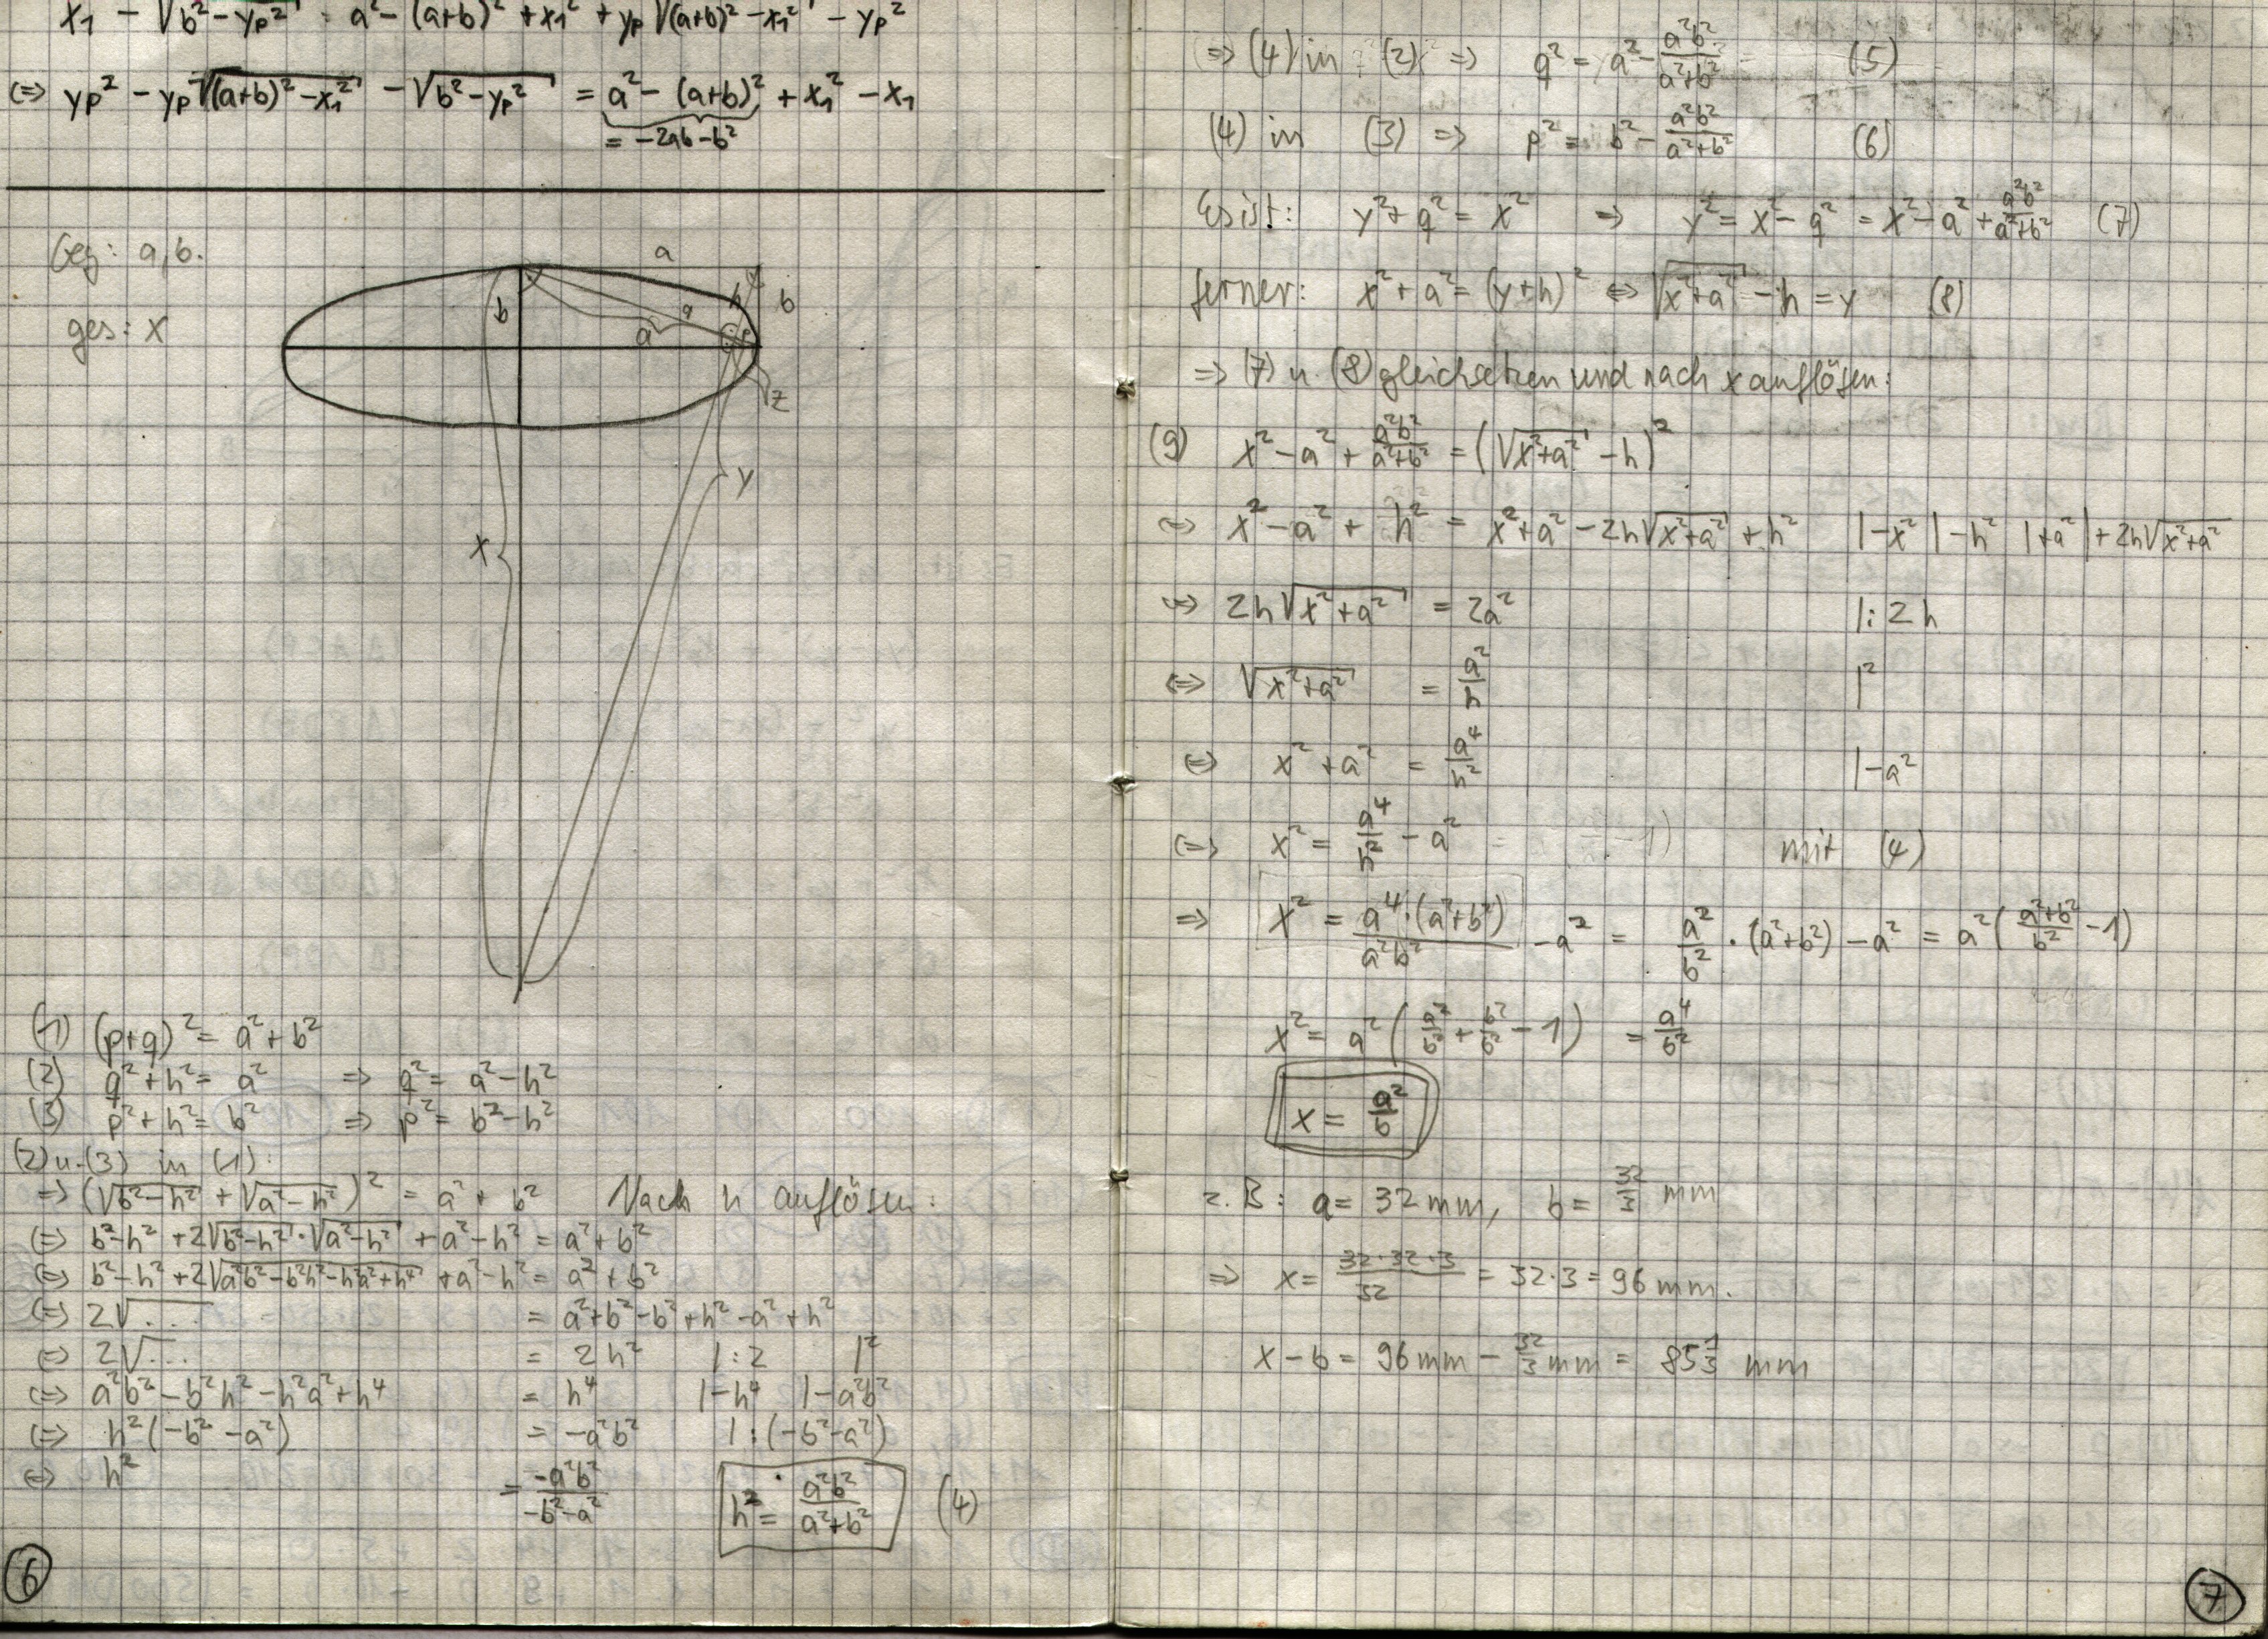 x₁ - √(b² - yp²) = a² - (a+b)² + x₁² + yp √((a+b)² - x₁²) - yp²
⇔ yp² - yp √((a+b)² - x₁²) - √(b² - yp²) = a² - (a+b)² + x₁² - x₁
= -2ab - b²
Geg: a, b.
ges: x
a
b
h
b
q
a
p
z
y
x
(1) (p+q)² = a² + b²
(2) q² + h² = a² ⇒ q² = a² - h²
(3) p² + h² = b² ⇒ p² = b² - h²
(2) u. (3) in (1):
⇒ (√(b²-h²) + √(a²-h²))² = a² + b² Nach h auflösen:
⇔ b² - h² + 2√(b²-h²) · √(a²-h²) + a² - h² = a² + b²
⇔ b² - h² + 2√(a²b² - b²h² - h²a² + h⁴) + a² - h² = a² + b²
⇔ 2√.... = a² + b² - b² + h² - a² + h²
⇔ 2√... = 2h² |:2 |²
⇔ a²b² - b²h² - h²a² + h⁴ = h⁴ |-h⁴ |-a²b²
⇔ h²(-b² - a²) = -a²b² |:(-b²-a²)
⇔ h² = -a²b²/(-b²-a²) h² = a²b²/(a²+b²) (4)
6
⇒ (4) in (2) ⇒ q² = a² - a²b²/(a²+b²) (5)
(4) in (3) ⇒ p² = b² - a²b²/(a²+b²) (6)
Es ist: y² + q² = x² ⇒ y² = x² - q² = x² - a² + a²b²/(a²+b²) (7)
ferner: x² + a² = (y+h)² ⇔ √(x²+a²) - h = y (8)
⇒ (7) u. (8) gleichsetzen und nach x auflösen:
(9) x² - a² + a²b²/(a²+b²) = (√(x²+a²) - h)²
⇔ x² - a² + h² = x² + a² - 2h√(x²+a²) + h² |-x² |-h² |+a² |+2h√(x²+a²)
⇔ 2h√(x²+a²) = 2a² |:2h
⇔ √(x²+a²) = a²/h |²
⇔ x² + a² = a⁴/h² |-a²
⇔ x² = a⁴/h² - a² mit (4)
⇒ x² = a⁴·(a²+b²)/(a²b²) - a² = a²/b² · (a²+b²) - a² = a²((a²+b²)/b² - 1)
x² = a²(a²/b² + b²/b² - 1) = a⁴/b²
x = a²/b
z.B: a = 32 mm, b = 32/3 mm
⇒ x = 32·32·3/32 = 32·3 = 96 mm.
x - b = 96 mm - 32/3 mm = 85 1/3 mm
7